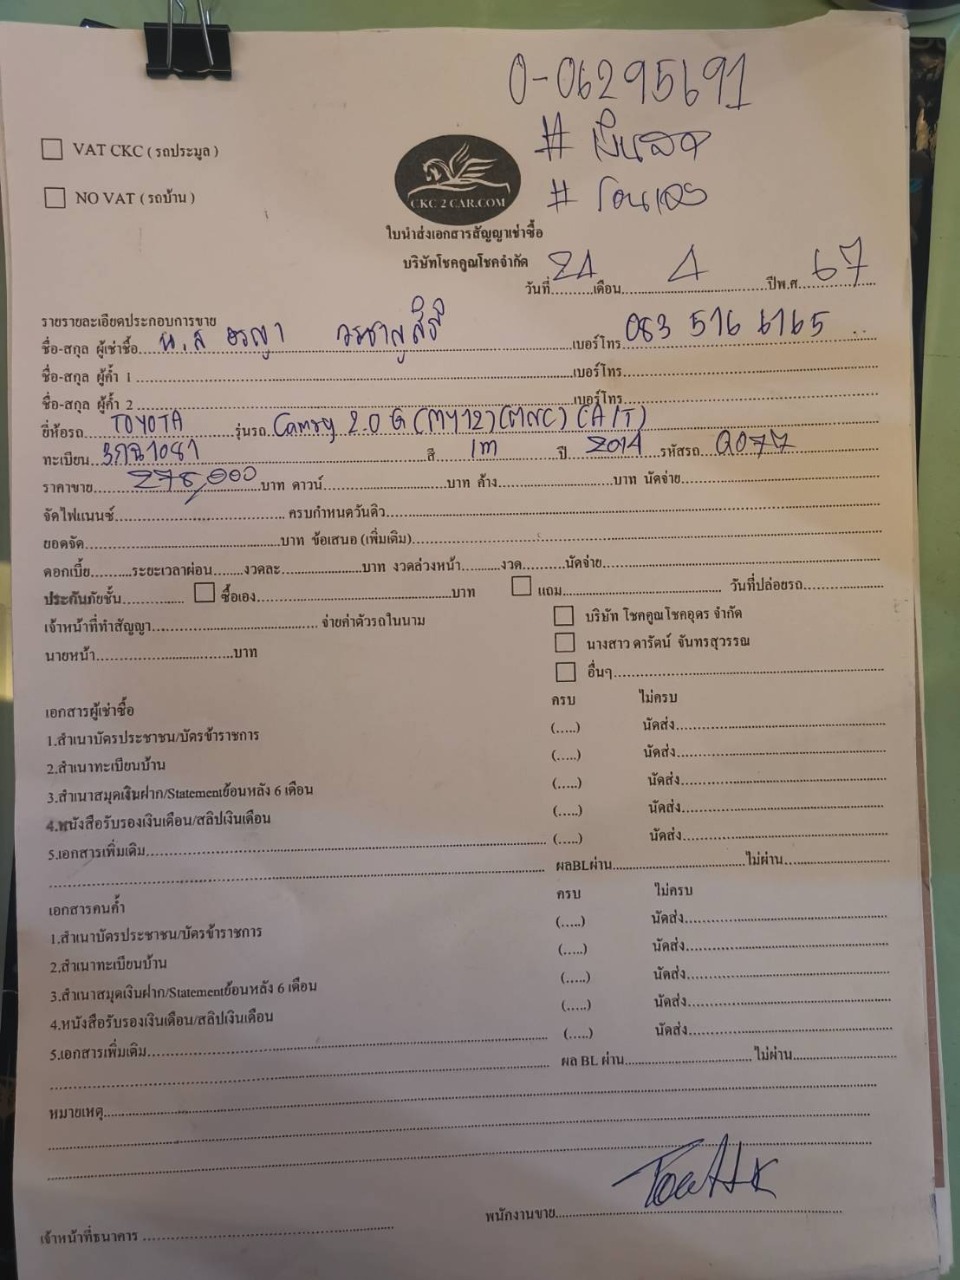 0-06295691
# เงินสด
# โอนเอง
VAT CKC ( รถประมูล )
NO VAT ( รถบ้าน )
CKC 2 CAR.COM
ใบนำส่งเอกสารสัญญาเช่าซื้อ
บริษัทโชคคูณโชคจำกัด
วันที่ 24 เดือน 4 ปีพ.ศ. 67
รายรายละเอียดประกอบการขาย
ชื่อ-สกุล ผู้เช่าซื้อ น.ส อรญา เบอร์โทร 083 516 6165
ชื่อ-สกุล ผู้ค้ำ 1 เบอร์โทร
ชื่อ-สกุล ผู้ค้ำ 2 เบอร์โทร
ยี่ห้อรถ TOYOTA รุ่นรถ Camry 2.0 G (MY12) (MNC) (A/T)
ทะเบียน 3กฉ1081 สี เทา ปี 2014 รหัสรถ Q077
ราคาขาย 278,000 บาท ดาวน์ บาท ค้าง บาท นัดจ่าย
จัดไฟแนนซ์ ครบกำหนดวันดิว
ยอดจัด บาท ข้อเสนอ (เพิ่มเติม)
ดอกเบี้ย ระยะเวลาผ่อน งวดละ บาท งวดล่วงหน้า งวด นัดจ่าย
ประกันภัยชั้น ซื้อเอง บาท แถม วันที่ปล่อยรถ
เจ้าหน้าที่ทำสัญญา จ่ายค่าตัวรถในนาม บริษัท โชคคูณโชคอุดร จำกัด
นายหน้า บาท นางสาว ดารัตน์ จันทรสุวรรณ
อื่นๆ
เอกสารผู้เช่าซื้อ ครบ ไม่ครบ
1.สำเนาบัตรประชาชน/บัตรข้าราชการ (.....) นัดส่ง
2.สำเนาทะเบียนบ้าน (.....) นัดส่ง
3.สำเนาสมุดเงินฝาก/Statementย้อนหลัง 6 เดือน (.....) นัดส่ง
4.หนังสือรับรองเงินเดือน/สลิปเงินเดือน (.....) นัดส่ง
5.เอกสารเพิ่มเติม (.....) นัดส่ง
ผลBLผ่าน ไม่ผ่าน
เอกสารคนค้ำ ครบ ไม่ครบ
1.สำเนาบัตรประชาชน/บัตรข้าราชการ (.....) นัดส่ง
2.สำเนาทะเบียนบ้าน (.....) นัดส่ง
3.สำเนาสมุดเงินฝาก/Statementย้อนหลัง 6 เดือน (.....) นัดส่ง
4.หนังสือรับรองเงินเดือน/สลิปเงินเดือน (.....) นัดส่ง
5.เอกสารเพิ่มเติม (.....) นัดส่ง
ผล BL ผ่าน ไม่ผ่าน
หมายเหตุ
พนักงานขาย
เจ้าหน้าที่ธนาคาร